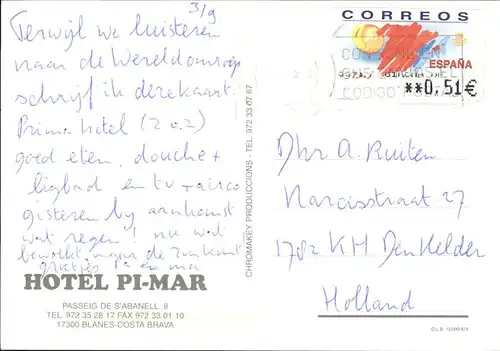 3/9
Terwijl we luisteren
naar de Wereldomroep
schrijf ik deze kaart.
Prima hotel (2 o.z)
goed eten, douche +
ligbad en tv + airco
gisteren by aankomst
wat regen! nu wat
bewolkt maar de zon komt
groetjes
HOTEL PI-MAR
PASSEIG DE S'ABANELL, 8
TEL. 972 35 28 17 FAX 972 33 01 10
17300 BLANES-COSTA BRAVA
CHROMAKEY PRODUCCIONS - TEL. 972 33 07 67
CORREOS
ESPAÑA
**0,51€
CODIGO
Dhr A. Ruiten
Narcisstraat 27
1782 KH Den Helder
Holland